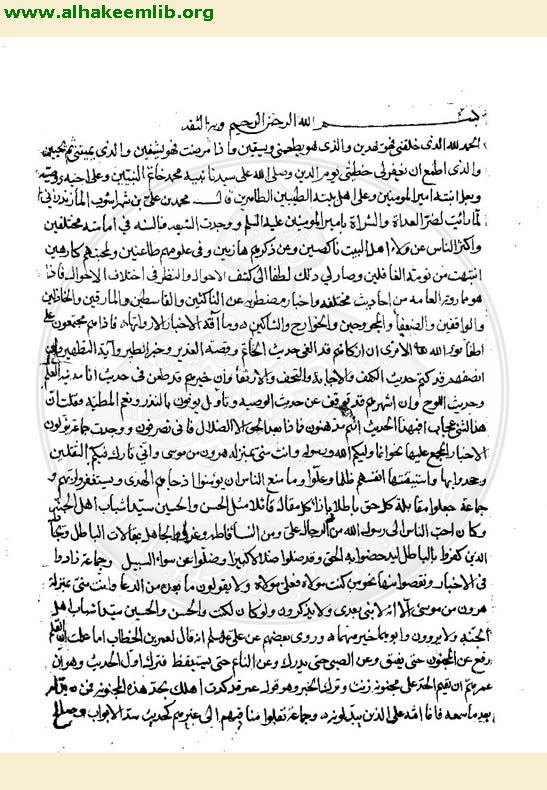 www.alhakeemlib.org
بسم الله الرحمن الرحيم وبه الثقه
الحمد لله الذى خلقنى فهو يهدين والذى هو يطعمنى ويسقين واذا مرضت فهو يشفين والذى يميتنى ثم يحيين
والذى اطمع ان يغفر لى خطيئتى يوم الدين وصلى الله على سيدنا نبيه محمد خاتم النبيين وعلى اخيه
وبعل ابنته امير المومنين وعلى اهل بيته الطيبين الطاهرين قال محمد بن على بن شهراشوب المازندرانى
لما رايت كفر العداة والشراة بامير المومنين عليه السلم و وجدت الشيعه والسنه فى امامته مختلفين
واكثر الناس عن ولاء اهل البيت ناكصين وعن ذكرهم هاربين وفى علومهم طاعنين ولمحبتهم كارهين
انتبهت من نومة الغافلين وصار لى ذلك لطفا الى كشف الاحوال والنظر فى اختلاف الاقوال فاذا
هو ما روته العامه من احاديث مختلفه واخبار مضطربه عن الناكثين والقاسطين والمارقين والخاذلين
والواقفين والضعفا والمجروحين والخوارج والشاكين وما آفة الاخبار الا رواتها فاذا هم مجتمعون على
اطفا نور الله الا ترى ان ازكاهم قد القى حديث الخاتم وقصه الغدير وخبر الطير وآية التطهير وان
انصفهم قد كتم حديث الكهف والاجابة والتحف والارتقا وان خيرهم قد طعن فى حديث انا مدينه العلم
وحديث اللوح وان اشهرهم قد توقف عن حديث الوصيه وتاول يوفون بالنذر ونعم المطيه فقلت ان
هذا لشى عجاب افبهذا الحديث انتم مدهنون فماذا بعد الحق الا الضلال فانى تصرفون و وجدت جماعة يؤولون
الاخبار المجمع عليها نحو انما وليكم الله ورسوله وانت منى بمنزلة هرون من موسى وانى تارك فيكم الثقلين
وجحدوا بها واستيقنتها انفسهم ظلما وعلوا وما منع الناس ان يومنوا اذ جاهم الهدى ويستغفروا ربهم و
جماعة جعلوا مقابلة كل حق باطلا وبازا كل مقالة قائلا مثل الحسن والحسين سيدا شباب اهل الجنه
وكان احب الناس الى رسول الله من الرجال على ومن النسا فاطمه بمقالات الباطل
الذين كفروا بالباطل ليدحضوا به الحق وقد ضلوا ضلالا كبيرا وضلوا عن سواء السبيل وجماعة زادوا
فى الاخبار ونقصوا منها نحو من كنت مولاه فعلى مولاه ولا يقولون ما بعده من الدعا وانت منى بمنزلة
هرون من موسى الا انه لا نبى بعدى ولا يذكرون ولو كان لكنت والحسن والحسين سيدا شباب اهل
الجنه ولا يروون وابوهما خير منهما وروى بعضهم عن على عليه السلم انه قال لعمر بن الخطاب اما علمت ان القلم
رفع عن المجنون حتى يفيق وعن الصبى حتى يدرك وعن النائم حتى يستيقظ فترك اول الحديث وهو ان
عمر هم ان يقيم الحد على مجنونة زنت وترك الخبر وهو قوله عمر قد كدت اهلك بحد هذه المجنونه فمن بدله
بعد ما سمعه فانما اثمه على الذين يبدلونه وجماعة نقلوا مناقبهم الى غيرهم كحديث سد الابواب وصالح